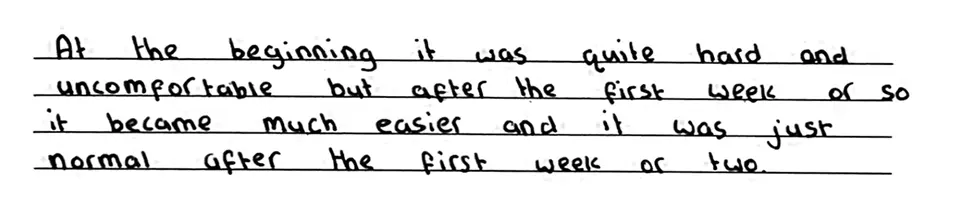 At the beginning it was quite hard and
uncomfortable but after the first week or so
it became much easier and it was just
normal after the first week or two.